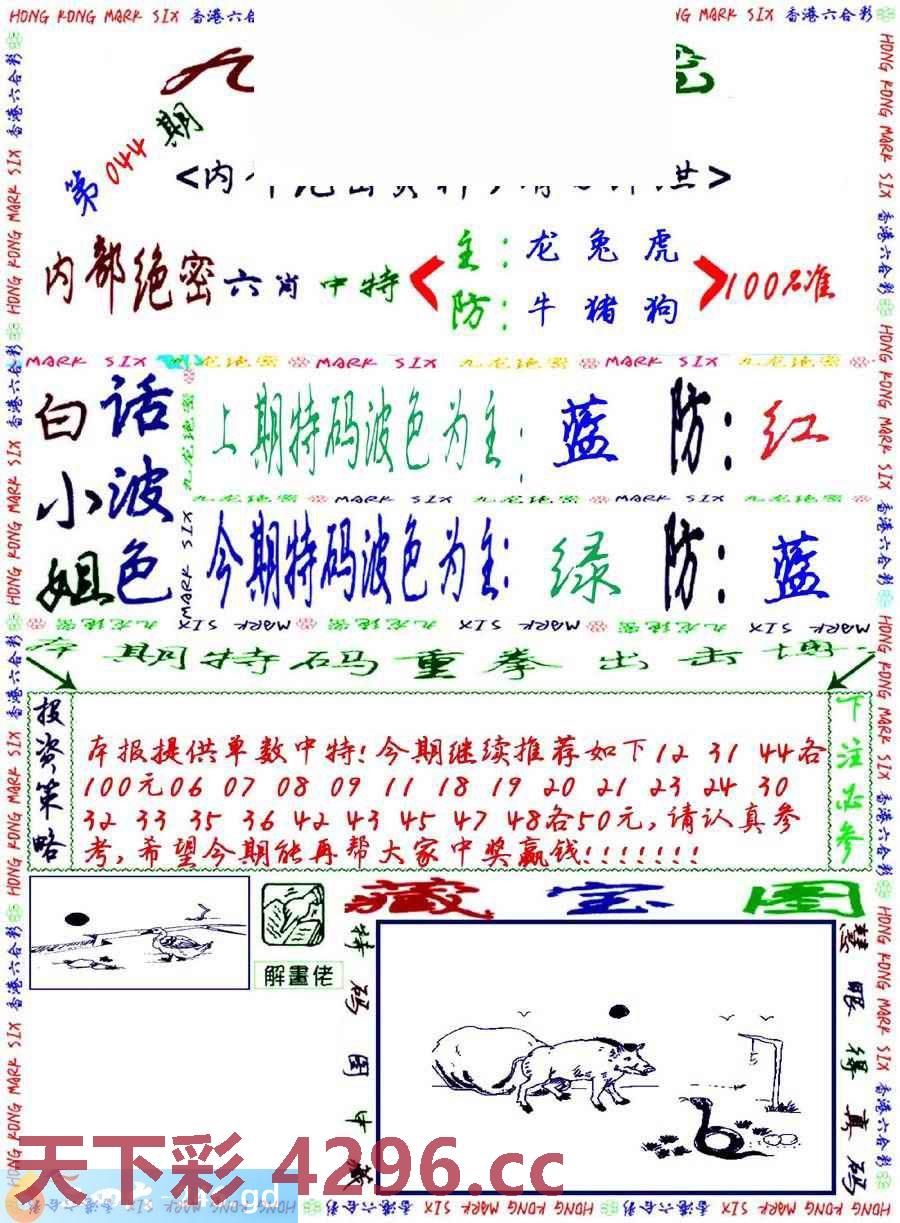 HONG KONG MARK SIX 香港六合彩
第044期
六肖中特
内部绝密六肖中特
主：龙兔虎
防：牛猪狗
100%准
MARK SIX 九龙绝密 MARK SIX 九龙绝密 MARK SIX 九龙绝密
白话小波姐色
上期特码波色为主：蓝 防：红
九龙绝密 MARK SIX 九龙绝密 MARK SIX 九龙绝密
今期特码波色为主：绿 防：蓝
期特码重拳出击
投资策略
本报提供单数中特!今期继续推荐如下12 31 44各
100元06 07 08 09 11 18 19 20 21 23 24 30
32 33 35 36 42 43 45 47 48各50元,请认真参
考,希望今期能再帮大家中奖赢钱!!!!!!!
下注必参
藏宝图
解畫佬
特码图中藏
慧眼得真码
天下彩4296.cc